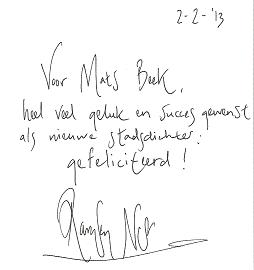 2-2-'13
Voor Mats Beek,
heel veel geluk en succes gewenst
als nieuwe stadsdichter:
gefeliciteerd!
Ramsey Nasr